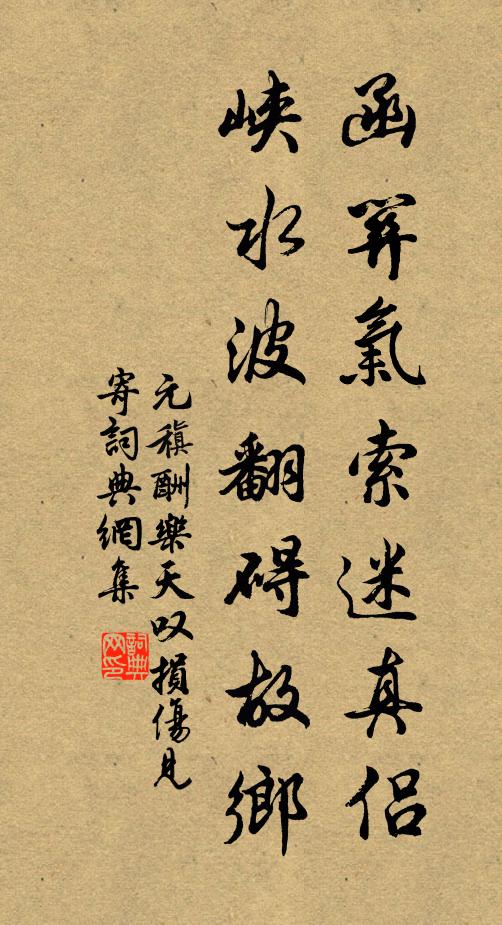 函關氣索迷真侶
峽水波翻碍故鄉
元稹酬樂天叹損傷見
寄詞典網集
詞典
网印